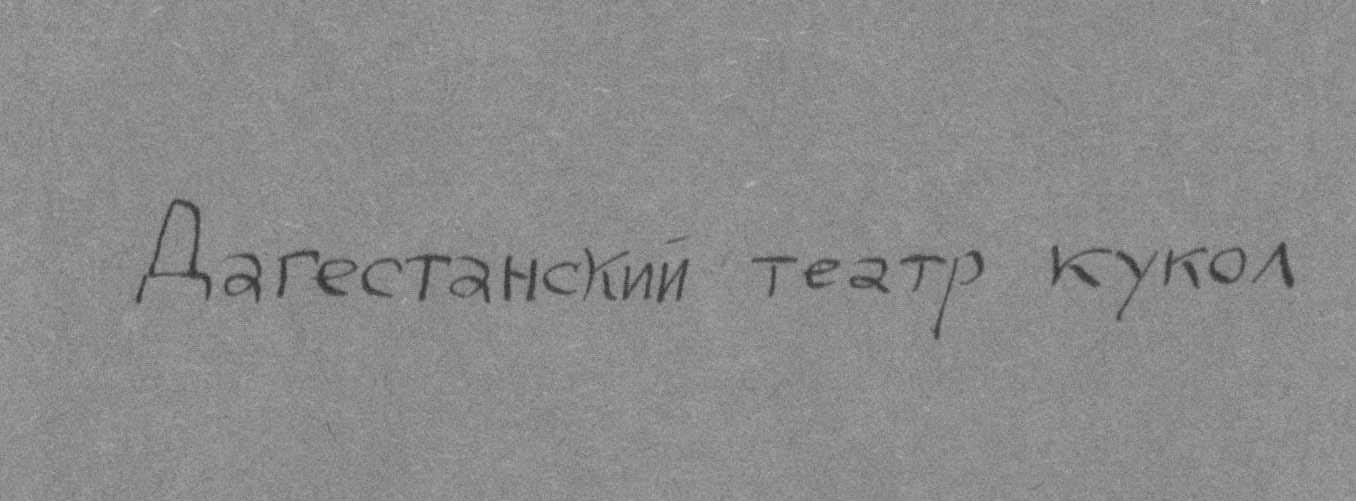 Дагестанский театр кукол